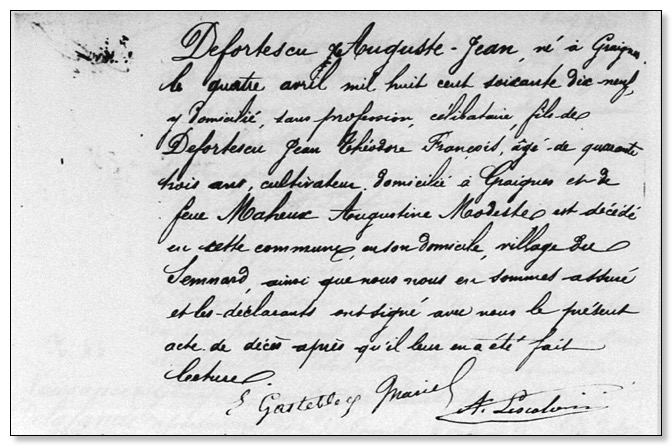 Defortescu Auguste-Jean, né à Graignes
le quatre avril mil huit cent soixante dix neuf,
y domicilié, sans profession, célibataire, fils de
Defortescu Jean Théodore François, âgé de quarante
trois ans, cultivateur, domicilié à Graignes et de
feue Maheux Augustine Modeste, est décédé
en cette commune, en son domicile, village du
ainsi que nous nous en sommes assuré
et les déclarants ont signé avec nous le présent
acte de décès après qu'il leur en a été fait
lecture.